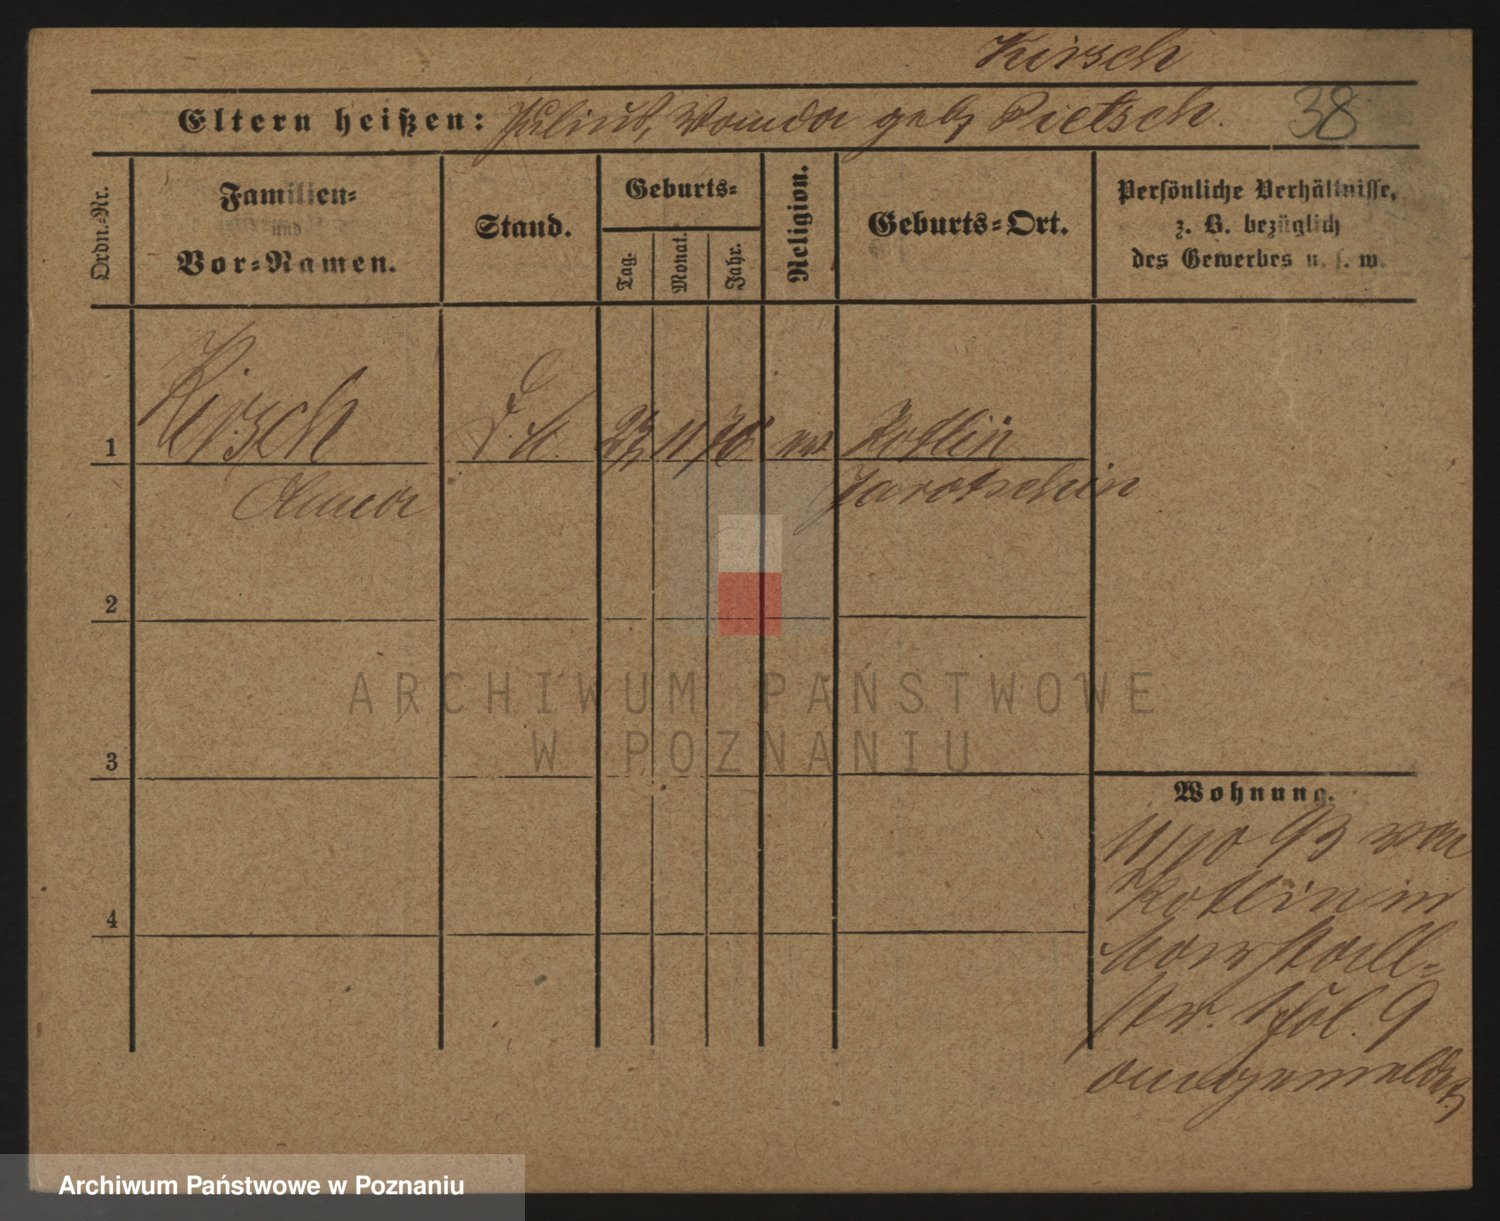 Kirsch
Eltern heißen: Julius, Wanda geb. Pietsch. 38
Ordn.-Nr.
Familien-
und
Vor-Namen.
Stand.
Geburts-
Tag.
Monat.
Jahr.
Religion.
Geburts-Ort.
Persönliche Verhältnisse,
z. B. bezüglich
des Gewerbes u. s. w.
1 Kirsch 11 76 Kotlin
Anna Jarotschin
2
3
4
ARCHIWUM PAŃSTWOWE
W POZNANIU
Wohnung.
11/10 93 von
Kotlin in
str. 9
angemeldet
Archiwum Państwowe w Poznaniu